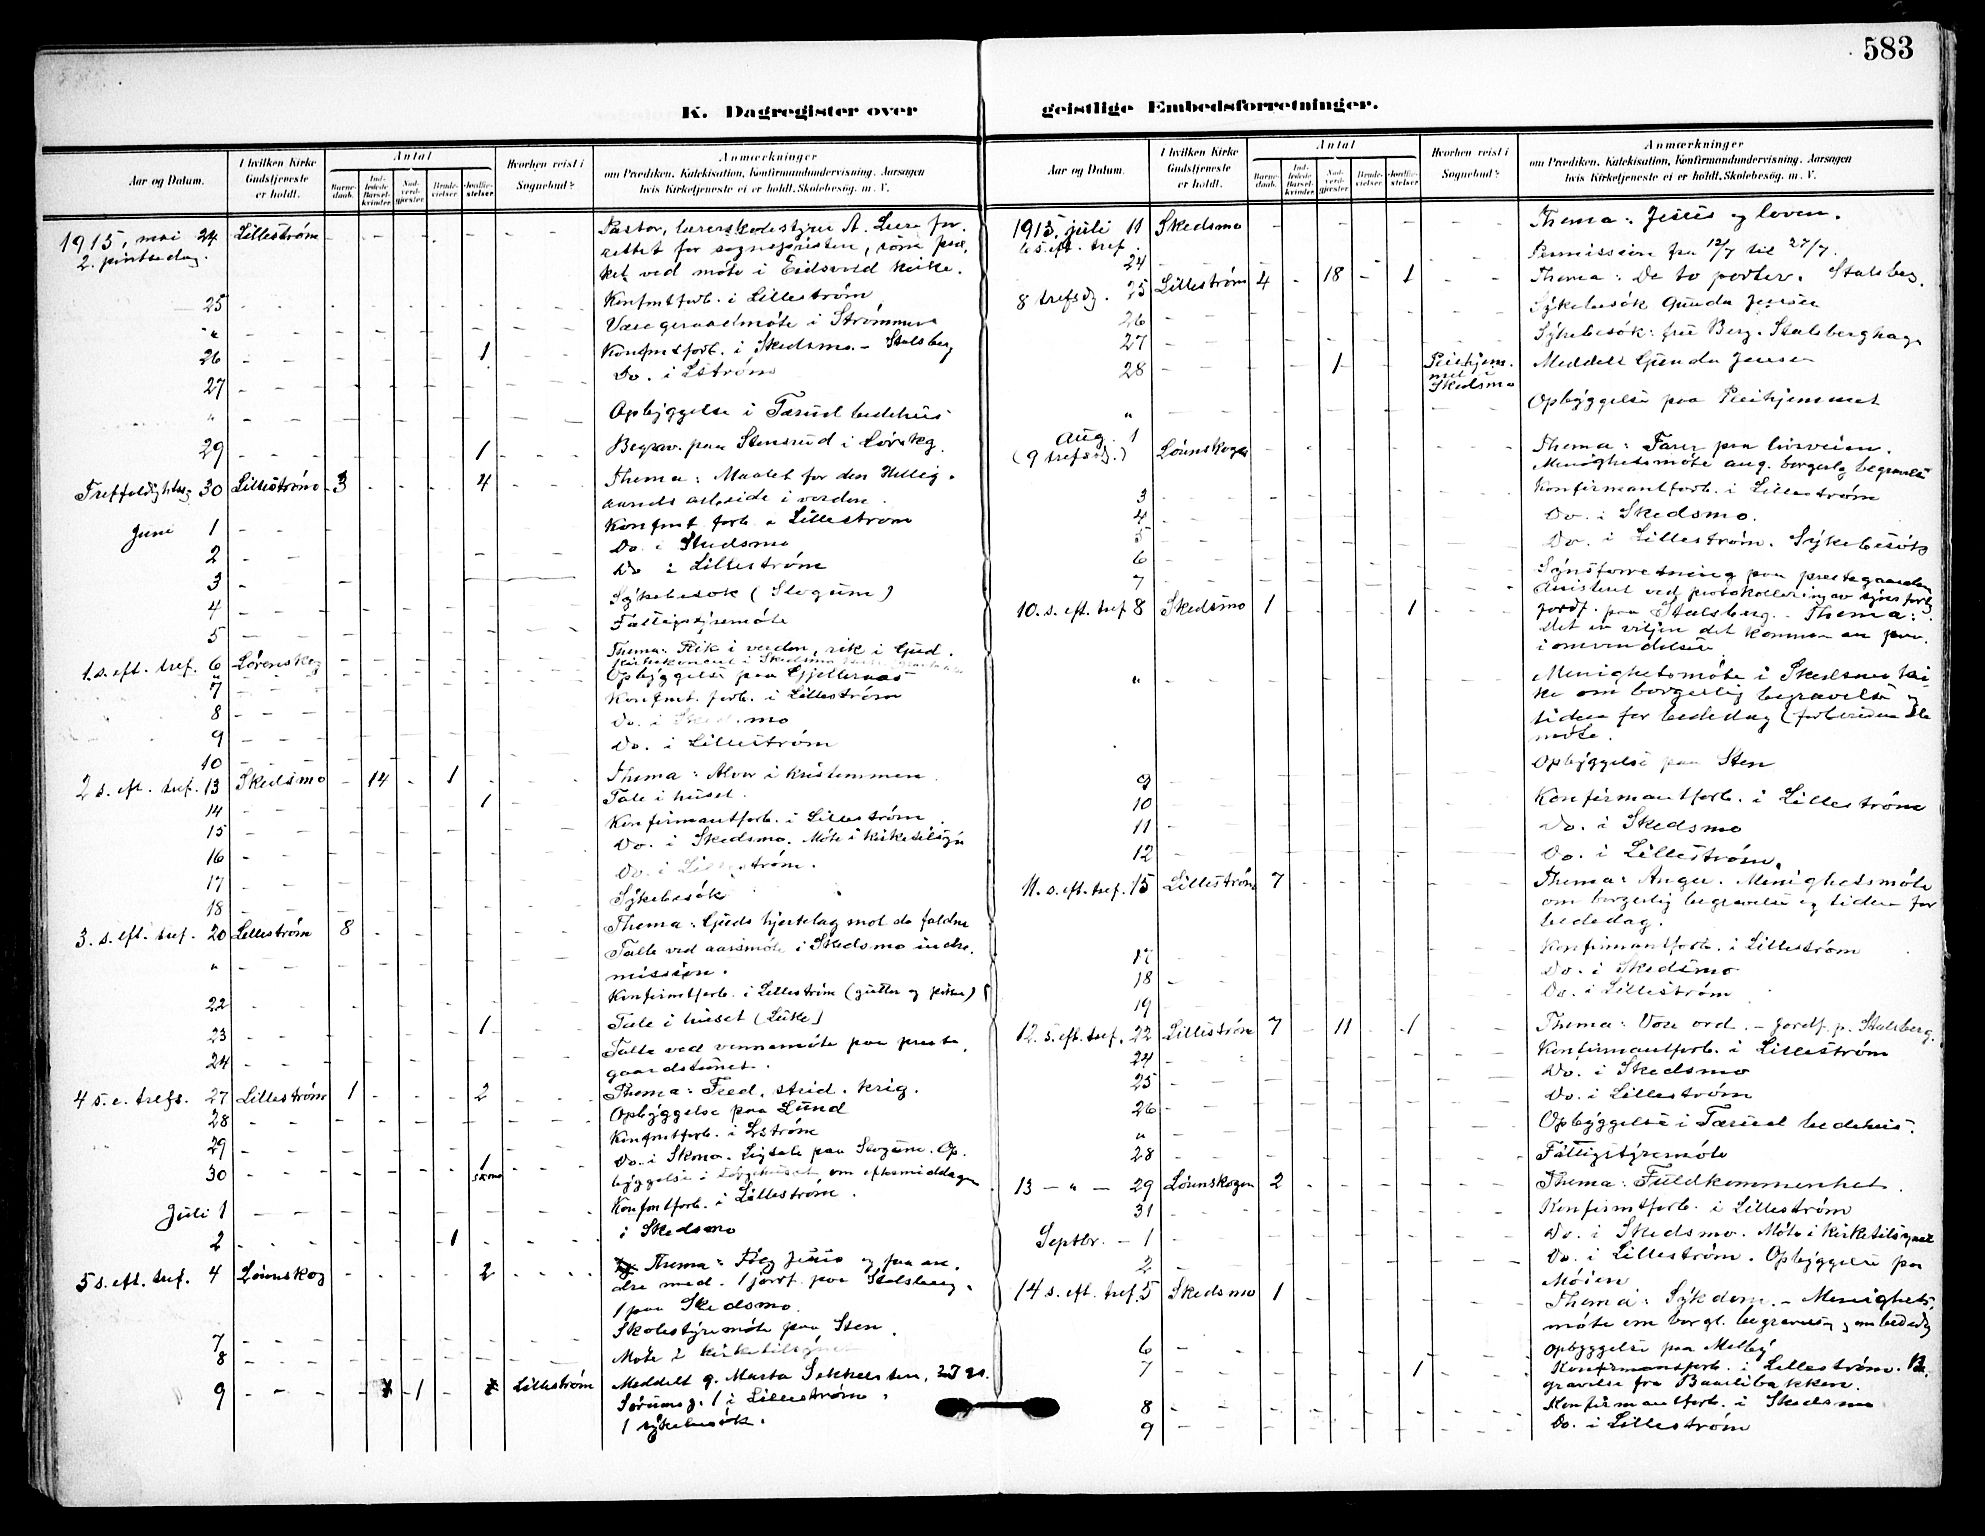 583
K. Dagregister over geistlige Embedsforretninger.
Aar og Datum. I hvilken Kirke Gudstjeneste er holdt. Antal Barnedaab. Indledede Barselkvinder Nadverdgjester Brudevielser Jordfæstelser Hvorhen reist i Sognebud? Anmærkninger om Prædiken, Katekisation, Konfirmandundervisning, Aarsagen hvis Kirketjeneste ei er holdt, Skolebesøg, m. V.
1915, mai 24 Lilleström Pastor,
2. pintsedag.
ket ved möte i Eidsvold kirke.
25 Konfmtforb. i Lilleström
" Vaergeraadmöte i Strömmen
26 1 Konfmtforb. i Skedsmo - Stalsberg
27 Do. i Lström
" Opbyggelse i Tærud bedehus
29 1 Begrav. paa Stensrud i Lørskg.
Trefoldighetssg 30 Lilleström 3 4 Thema: Maalet for den Hellig-
aands arbeide i verden.
Juni 1 Konfmt. forb. i Lilleström
2 Do. i Skedsmo
3 Do i Lilleström
4 Sykebesök (Slogum)
5 Fattigstyremöte
1. s. eft. tref. 6 Lørenskog Thema: Rik i verden, rik i Gud.
" Opbyggelse paa Gjelleraas
7 Konfmt. forb. i Lilleström
8 Do. i Skedsmo
9 Do. i Lilleström
10
2 s. eft. tref. 13 Skedsmo 14 1 Thema: Alvor i kristenmen
14 1 Tale i huset.
15 Konfirmantforb. i Lilleström.
16 Do. i Skedsmo. Möte i kirketilsyn
17 Do. i Lilleström.
18 Sykebesök
3. s. eft. tref. 20 Lilleström 8 Thema: Guds hjertelag mot de faldne
" Talte ved aarsmöte i Skedsmo indre-
mission.
22 Konfirmtforb. i Lilleström (gutter og piker)
23 1 Tale i huset
24 Talte ved vennemöte paa preste-
gaardstunet.
4 s. e. trefs. 27 Lilleström 1 2 Thema: Fred, strid, krig.
28 Opbyggelse paa Lund
29 Konfmtforb. i Lström
30 1 Do. i Skmo. Ligtale paa Slogum. Op-
byggelse i om eftermiddagen
Juli 1 Konfmtforb. i Lilleström.
2 1 i Skedsmo
5 s. eft. tref. 4 Lørenskog 2 Thema: Fölg Jesus og faa an-
dre med. 1 jordf. paa Stalsberg,
1 paa Skedsmo.
7 Skolestyremöte paa Sten.
8 Möte i kirketilsynet
9 1 Lilleström Meddelt g. Marta
1 i Lilleström,
1 sykebesök.
Aar og Datum. I hvilken Kirke Gudstjeneste er holdt. Antal Barnedaab. Indledede Barselkvinder Nadverdgjester Brudevielser Jordfæstelser Hvorhen reist i Sognebud? Anmærkninger om Prædiken, Katekisation, Konfirmandundervisning, Aarsagen hvis Kirketjeneste ei er holdt, Skolebesøg, m. V.
1915, juli 11 Skedsmo Thema: Jesus og loven.
6 s. eft. tref.
24 Permission fra 12/7 til 27/7.
8 trefsdg. 25 Lilleström 4 18 1 Thema: De to porter. Stalsberg.
26 Sykebesök Gunda Jensen
27 Sykebesök: fru Berg. Stalsberghagen
28 1 Pleiehjem-
met i
Skedsmo Meddelt Gunda Jensen
" Opbyggelse paa Pleihjemmet
Aug. 1 Lørenskogen Thema: Farer paa livsveien.
(9 trefsdg.) Menighetsmöte ang. borgerlig begravelse
3 Konfirmantforb. i Lilleström
4 Do. i Skedsmo.
5 Do. i Lilleström. Sykebesök
6
7 Synsforretning paa prestegaarden
Assistent ved protokollering av synsforr.
10. s. eft. tref 8 Skedsmo 1 1 jordf. paa Stalsberg. Thema:
Det er viljen det kommer an paa
i omvendelsen
" Menighetsmöte i Skedsmo kir-
ke om borgerlig begravelse og
tiden for bededag (forberedende
möte.
9 Opbyggelse paa Sten
10 Konfirmantforb. i Lilleström
11 Do. i Skedsmo
12 Do. i Lilleström.
11. s. eft. tref. 15 Lilleström 7 Thema: Anger. Menighetsmöte
om borgerlig begravelse og tiden for
bededag.
17 Konfirmantforb. i Lilleström
18 Do. i Skedsmo
19 Do. i Lilleström
12. s. eft. tref. 22 Lilleström 7 11 1 Thema: Vore ord. - Jordf. p. Stalsberg.
24 Konfirmantforb. i Lilleström
25 Do. i Skedsmo
26 Do. i Lilleström
" Opbyggelse i Tærud bedehus.
28 Fattigstyremöte
13 - " - 29 Lørenskogen 2 Thema: Fuldkommenhet.
31 Konfirmtforb. i Lilleström
Septbr. - 1 Do. i Skedsmo. Möte i kirketilsynet
2 Do. i Lilleström. Opbyggelse paa
Moien
14 s. eft. tref. 5 Skedsmo 1 Thema: Sykdom. - Menighets-
möte om borgl. begravelse og om bededag
6 Opbyggelse paa Melby
7 1 Konfirmantforb. i Lilleström. Be-
gravelse fra
8 Konfirmantforb. i Skedsmo
9 Do. i Lilleström